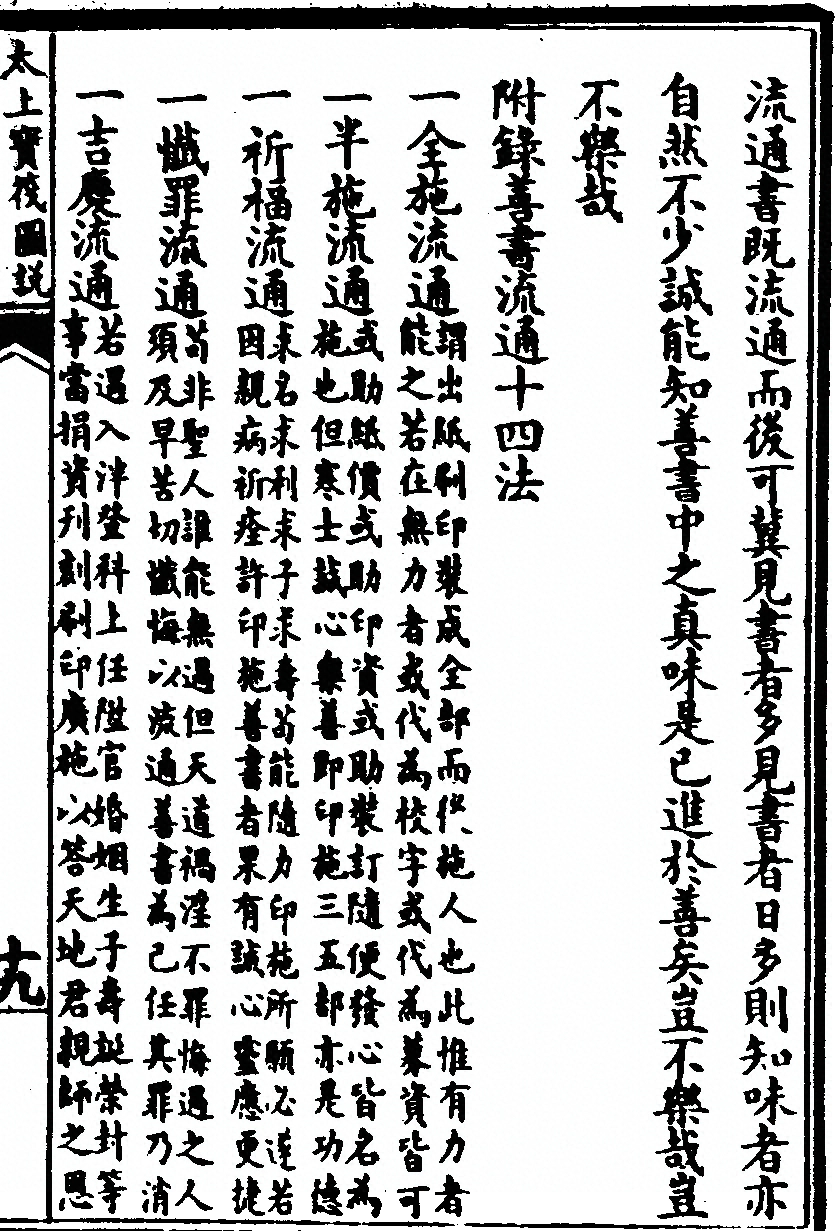 流通書既流通而後可冀見書者多見書者日多則知味者亦
自然不少誠能知善書中之真味是已進於善矣豈不樂哉豈
不樂哉
附錄善書流通十四法
一全施流通
謂出紙刷印裝成全部而供施人也此惟有力者
能之若在無力者或代為校字或代為募資皆可
一半施流通
或助紙價或助印資或助裝訂隨便發心皆名為
施也但寒士誠心樂善即印施三五部亦是功德
一祈福流通
求名求利求子求壽苟能隨力印施所願必遂若
因親病祈痊許印施善書者果有誠心靈應更捷
一懺罪流通
苟非聖人誰能無過但天道禍淫不罪悔過之人
須及早苦切懺悔以流通善書為己任其罪乃消
一吉慶流通
若遇入泮登科上任陞官婚姻生子壽誕榮封等
事當捐資刋刻刷印廣施以答天地君親師之恩
太上寶筏圖説
十九